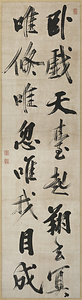 卧戲天臺起翔玄冥
唯倏唯忽唯我目成